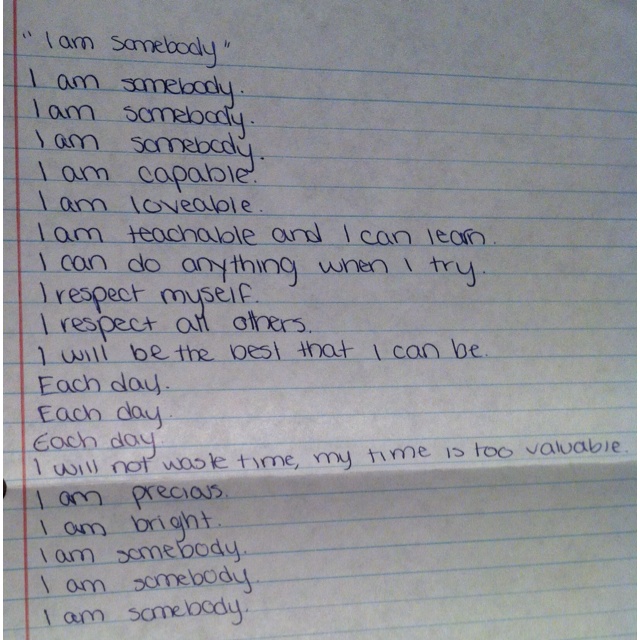 "I am somebody"
I am somebody.
I am somebody.
I am somebody.
I am capable.
I am loveable.
I am teachable and I can learn.
I can do anything when I try.
I respect myself.
I respect all others.
I will be the best that I can be.
Each day.
Each day.
Each day
I will not waste time, my time is too valuable.
I am precious.
I am bright.
I am somebody.
I am somebody.
I am somebody.